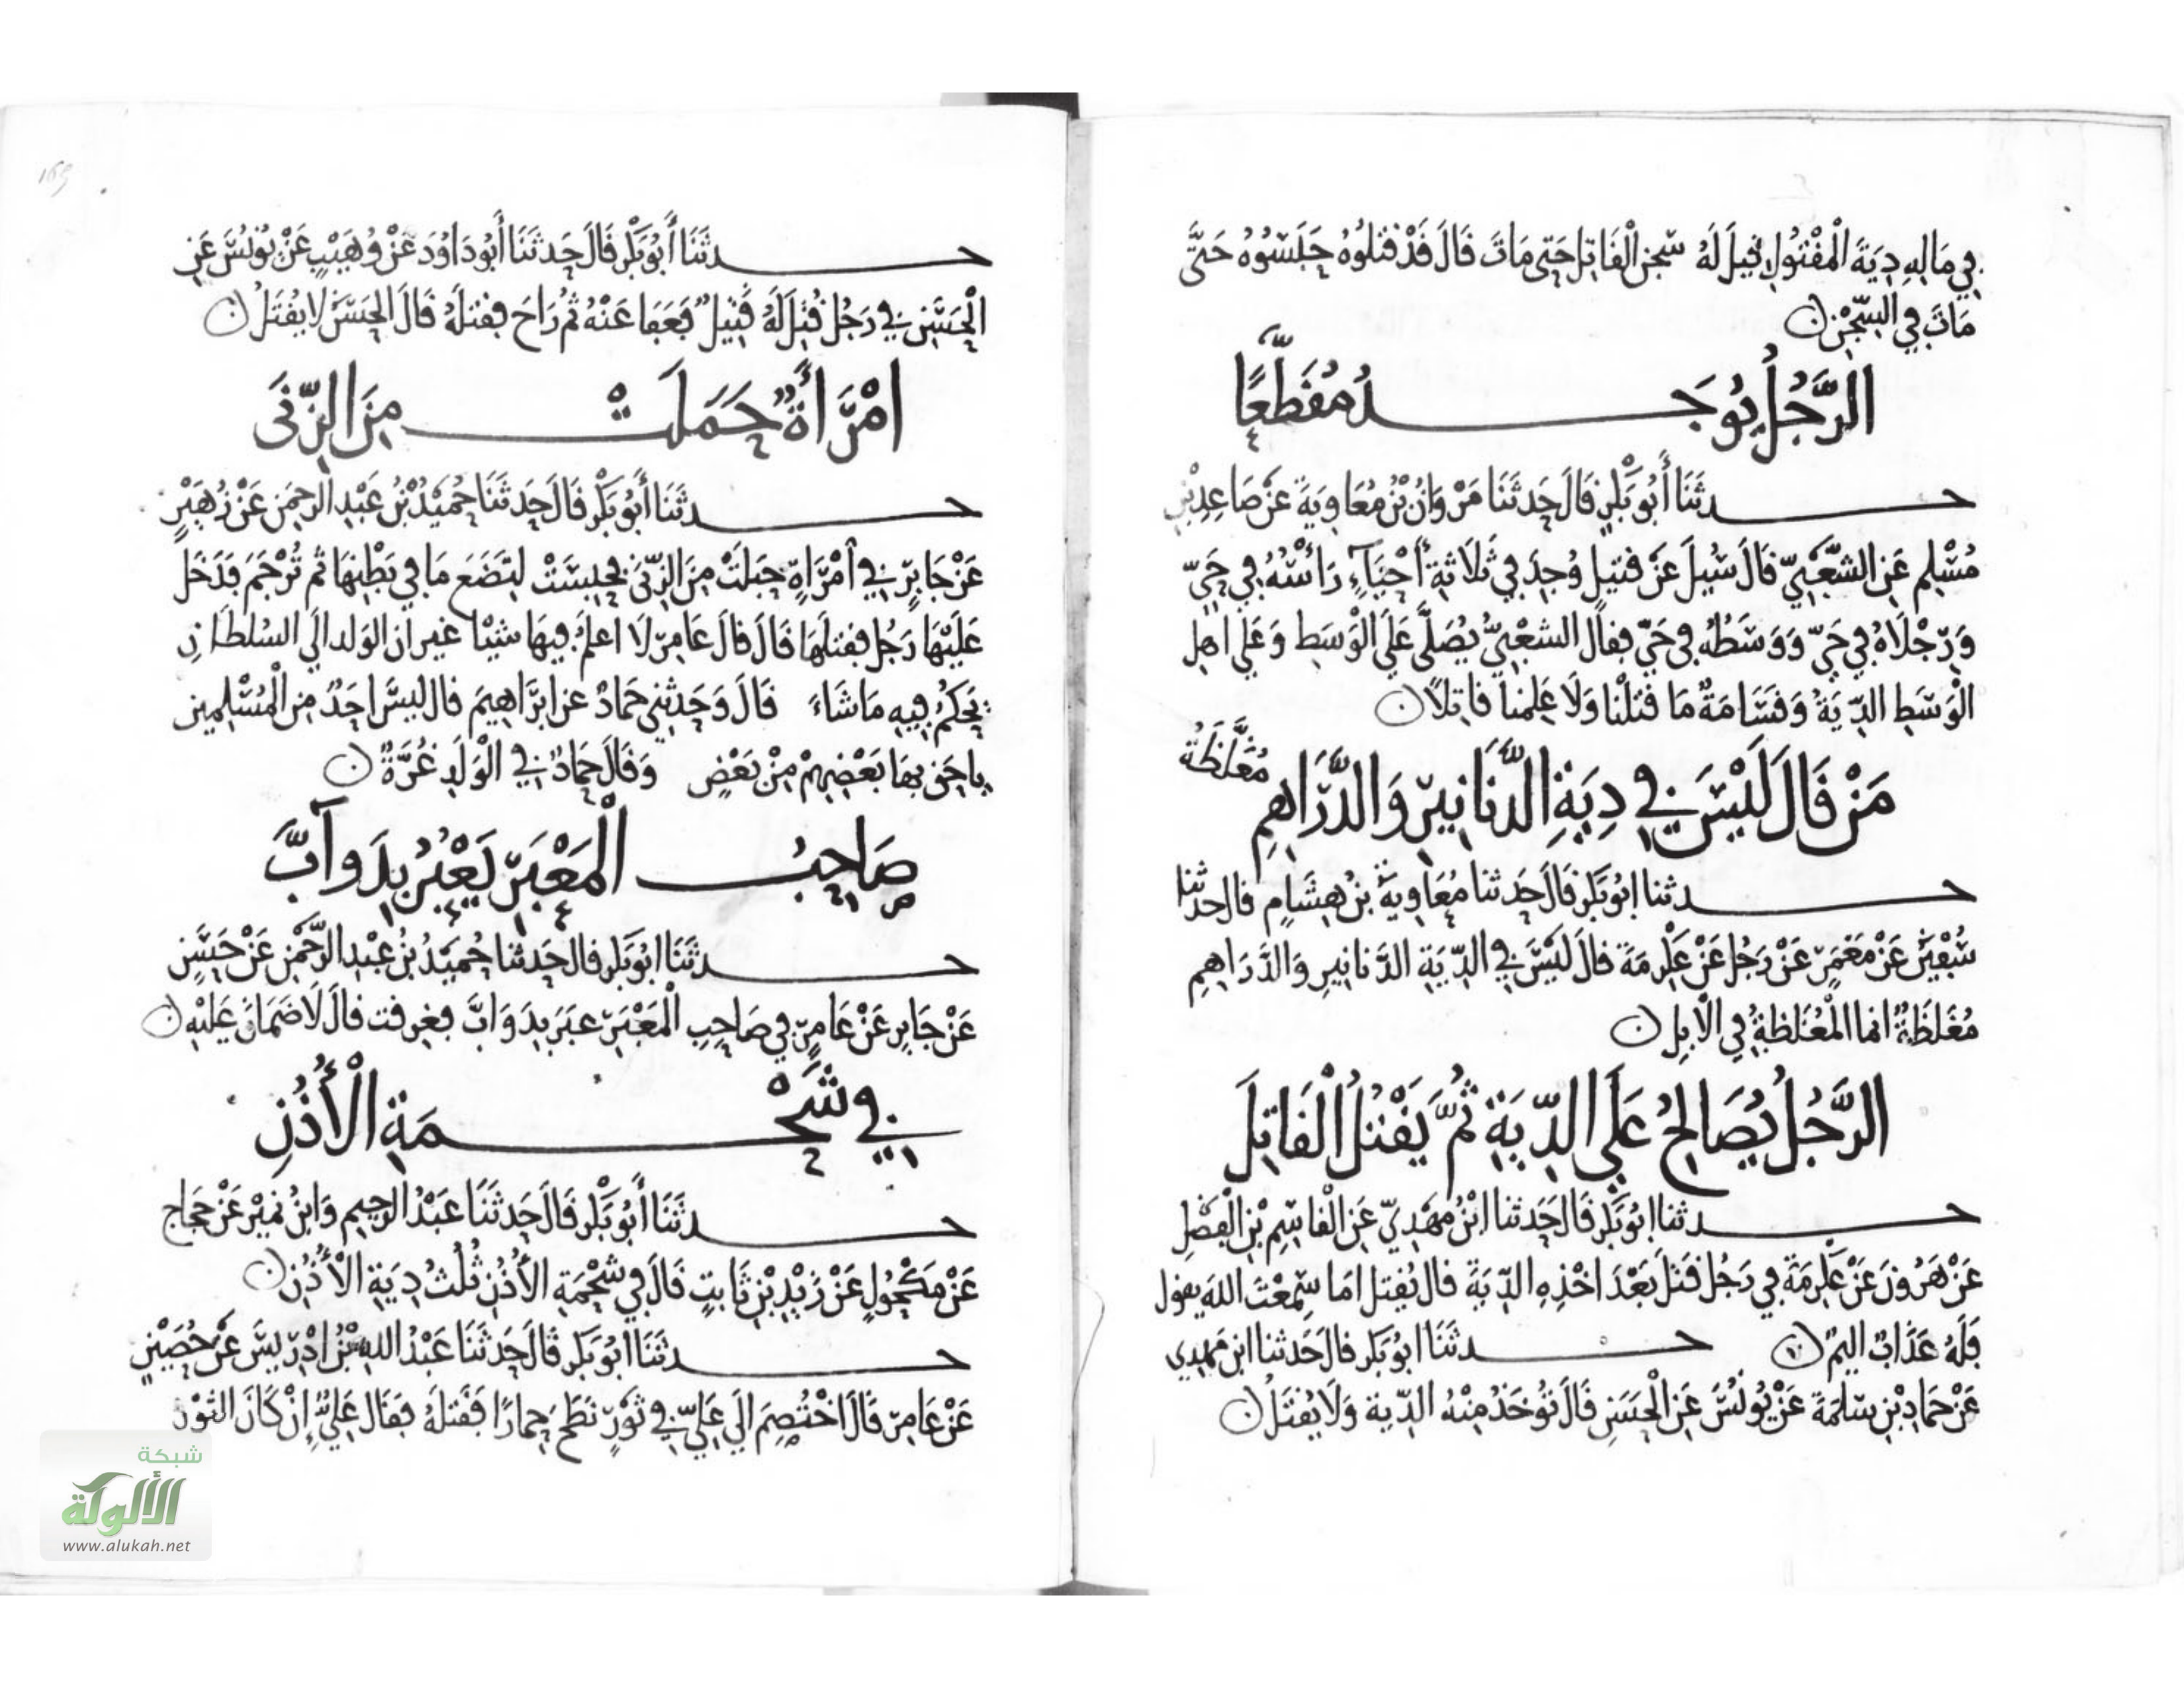 فِي مَالِهِ دِيَةَ الْمَقْتُولِ قِيلَ لَهُ سُجِنَ الْقَاتِلُ حَتَّى مَاتَ قَالَ قَدْ قَتَلُوهُ حَبَسُوهُ حَتَّى
مَاتَ فِي السِّجْنِ
الرَّجُلُ يُوجَدُ مُقَطَّعًا
حدثَنَا أَبُو بَكْرٍ قَالَ حَدثَنَا مَرْوَانُ بْنُ مُعَاوِيَةَ عَنْ صَاعِدِ بْنِ
مُسْلِمٍ عَنِ الشَّعْبِيِّ قَالَ سُئِلَ عَنْ قَتِيلٍ وُجِدَ فِي ثَلَاثَةِ أَحْيَآءٍ رَأْسُهُ فِي حَيٍّ
وَرِجْلَاهُ فِي حَيٍّ وَوَسَطُهُ فِي حَيٍّ فقالَ الشعْبِيُّ يُصَلَّى عَلَى الْوَسَطِ وَعَلَى اهل
الْوَسَطِ الدِّيَةُ وَقَسَامَةٌ مَا قَتَلْنَا وَلَا عَلِمنَا قَاتِلًا
مَنْ قَالَ لَيْسَ فِي دِيَةِ الدَّنَانِيرِ وَالدَّرَاهِمِ مُغَلَّظَةٌ
حدثنا ابُو بَكْر قَالَ حَدثنا مُعَاوِيَةُ بْنُ هِشَامٍ قال حدثنا
سُفْيَن عَنْ مَعْمَرٍ عَنْ رَجُل عَنْ عِكْرِمَةَ قالَ لَيْسَ فِي الدِّيَةِ الدَّنانِيرِ وَالدَّرَاهِمِ
مُغَلظَةٌ انما الْمُغَلظَةُ فِي الْابِلِ
الرَّجُلُ يُصَالِحُ عَلَى الدِّيَةِ ثُمَّ يَقْتُلُ الْقَاتِلَ
حدثنا ابُو بَكْر قَالَ حَدثنا ابْنُ مَهْدِيٍّ عَنِ الْقاسِمِ بْنِ الْفَضْلِ
عَنْ هَرُونَ عَنْ عِكْرِمَةَ فِي رَجُل قَتَلَ بَعْدَ اخْذِهِ الدِّيَةَ قال يُقتل امَا سَمِعْتَ اللهَ يقول
فَلَهُ عَذَابٌ اليمٌ حدثَنَا ابُو بَكْر قال حَدثنا ابن مَهْدِي
عَنْ حَمادِ بْنِ سَلَمَةَ عَنْ يُونُسَ عَنِ الْحَسَنِ قَالَ تُوخَذُ مِنْهُ الدِّيَة وَلَا يُقتَلُ
حدثَنَا أَبُو بَكْر قَالَ حَدثَنَا أَبُو دَاوُدَ عَنْ وُهَيْبٍ عَنْ يُونُسَ عَنِ
الْحَسَنِ فِي رَجُل قُتِلَ لَهُ قَتِيلٌ فَعَفَا عَنْهُ ثُم رَاحَ فقتلَهُ قَالَ الْحَسَنُ لَا يُقْتَلُ
امْرَأَةٌ حَمَلَتْ مِنَ الزِّنَى
حدثَنَا أَبُو بَكْر قَالَ حَدثَنَا حُمَيْدُ بْنُ عَبْدِ الرحمَن عَنْ زُهَيْرٍ
عَنْ جَابِرٍ فِي امْرَاةٍ حَبَلَتْ مِنَ الزِّنَى فَحُبِسَتْ لِتَضَعَ مَا فِي بَطْنِهَا ثم تُرْجَمَ فَدَخَل
عَلَيْهَا رَجُل فقتَلَهَا قَالَ قالَ عَامِرٌ لَا اعلمُ فِيهَا شَيْئًا غير ان الوَلد الَى السُلطَانِ
يَحْكُمُ فِيهِ مَا شَاءَ قَالَ وَحَدثَنِي حَمادٌ عن ابْرَاهِيمَ قال ليسَ احَدٌ مِن الْمُسْلِمِين
باحَق بهَا بَعْضِهِمْ مِنْ بَعْضٍ وَقَالَ حَمادٌ فِي الْوَلَدِ غُرَّةٌ
صَاحِبُ الْمَعْبَرِ يَعْبُرُ بِدَوآبَّ
حدثَنَا ابُو بَكْر قال حَدثنا حُمَيْدُ بْنُ عَبْدِ الرَّحْمَنِ عَنْ حَسَنٍ
عَنْ جَابِر عَنْ عَامِرٍ فِي صَاحِبِ الْمَعْبَرِ عبَرَ بِدَوَابَّ فغرقت قالَ لَا ضَمَانَ عَلَيْهِ
فِي شَحْمَةِ الْأُذُنِ
حدثَنَا أَبُو بَكْر قَالَ حَدثَنَا عَبْدُ الرحِيمِ وَابْنُ نُمَيْر عَنْ حَجاج
عَنْ مَكْحُولٍ عَنْ زَيْدِ بْنِ ثَابِتٍ قَالَ فِي شَحْمَةِ الْأُذُنِ ثُلُثُ دِيَةِ الْأُذُنِ
حدثَنَا ابُو بَكْر قَالَ حَدثَنَا عَبْدُ اللهِ بْنُ ادْرِيسَ عَنْ حُصَيْنٍ
عَنْ عَامِرٍ قَالَ اخْتُصِمَ الَى عَلِيٍّ فِي ثَوْرٍ نَطَحَ حِمارًا فَقَتلَهُ فَقَال عَلِيٌّ إِنْ كَانَ الثَوْر
شبكة
الألوكة
www.alukah.net